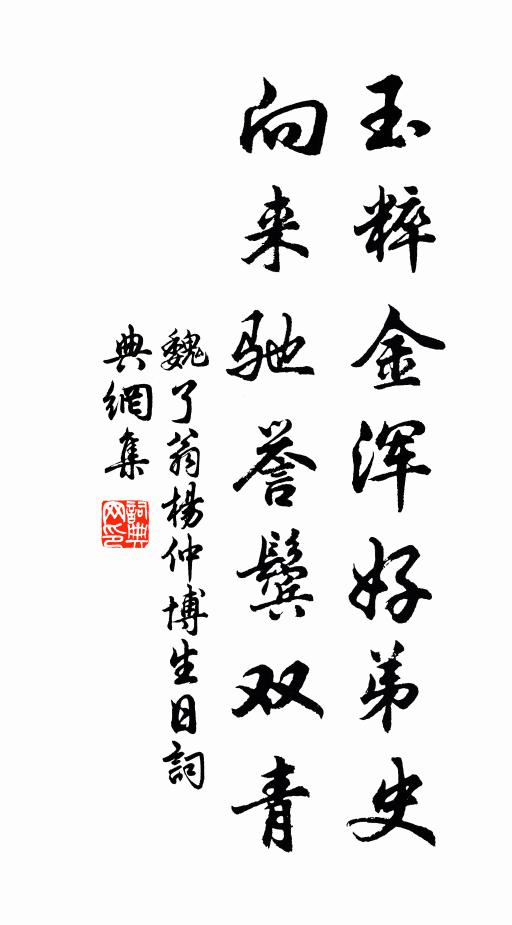 玉粹金浑好弟史
向来驰誉鬓双青
魏了翁杨仲博生日詞
典網集
詞典网印